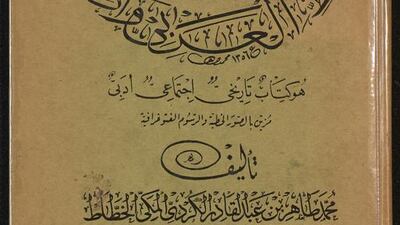 سنة ١٣٥٦ هـ
هو كتاب تاريخي اجتماعي أدبي
مزين بالصور الخطية والرسوم الفتوغرافية
تأليف
محمد طاهر بن عبد القادر الكردي المكي الخطاط